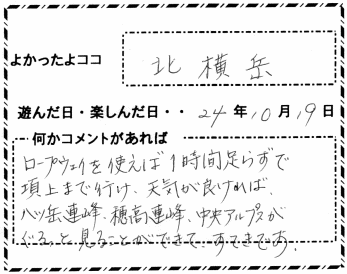 よかったよココ 北横岳
遊んだ日・楽しんだ日・・24年10月19日
何かコメントがあれば
ロープウェイを使えば1時間足らずで
頂上まで行け、天気が良ければ、
八ヶ岳連峰、穂高連峰、中央アルプスが
ぐるっと見ることができて、すてきです。